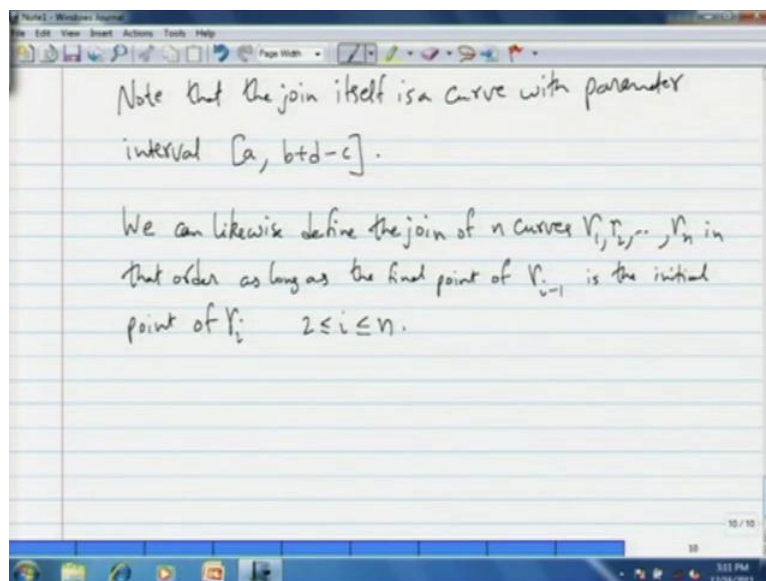 Note1 - Windows Journal
File Edit View Insert Actions Tools Help
Page Width
Note that the join itself is a curve with parameter
interval [a, b+d-c].
We can likewise define the join of n curves γ₁, γ₂, ..., γₙ in
that order as long as the final point of γᵢ₋₁ is the initial
point of γᵢ 2 ≤ i ≤ n.
10 / 10
10
3:01 PM